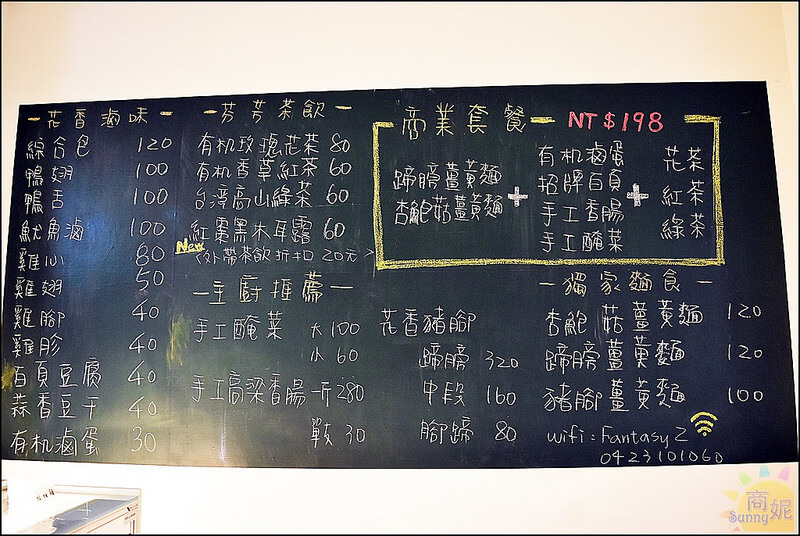 －花香滷味－
綜合包 120
鴨翅 100
鴨舌 100
魷魚滷 100
雞心 80
雞翅 50
雞腳 40
雞胗 40
百頁豆腐 40
蒜香豆干 40
有机滷蛋 30
－芳芳茶飲－
有机玫瑰花茶 80
有机香草紅茶 60
台湾高山綠茶 60
New 紅棗黑木耳露 60
<外帶茶飲折扣20元>
－主廚推薦－
手工醃菜 大100
小 60
手工高粱香腸 一斤280
戟 30
商業套餐 NT$198
蹄膀薑黃麵
杏鮑菇薑黃麵
+
有机滷蛋
招牌百頁
手工香腸
手工醃菜
+
花茶
紅茶
綠茶
花香豬腳
蹄膀 320
中段 160
腳蹄 80
－獨家麵食－
杏鮑菇薑黃麵 120
蹄膀薑黃麵 120
豬腳薑黃麵 100
wifi：Fantasy2
0423101060
商妮
Sunny